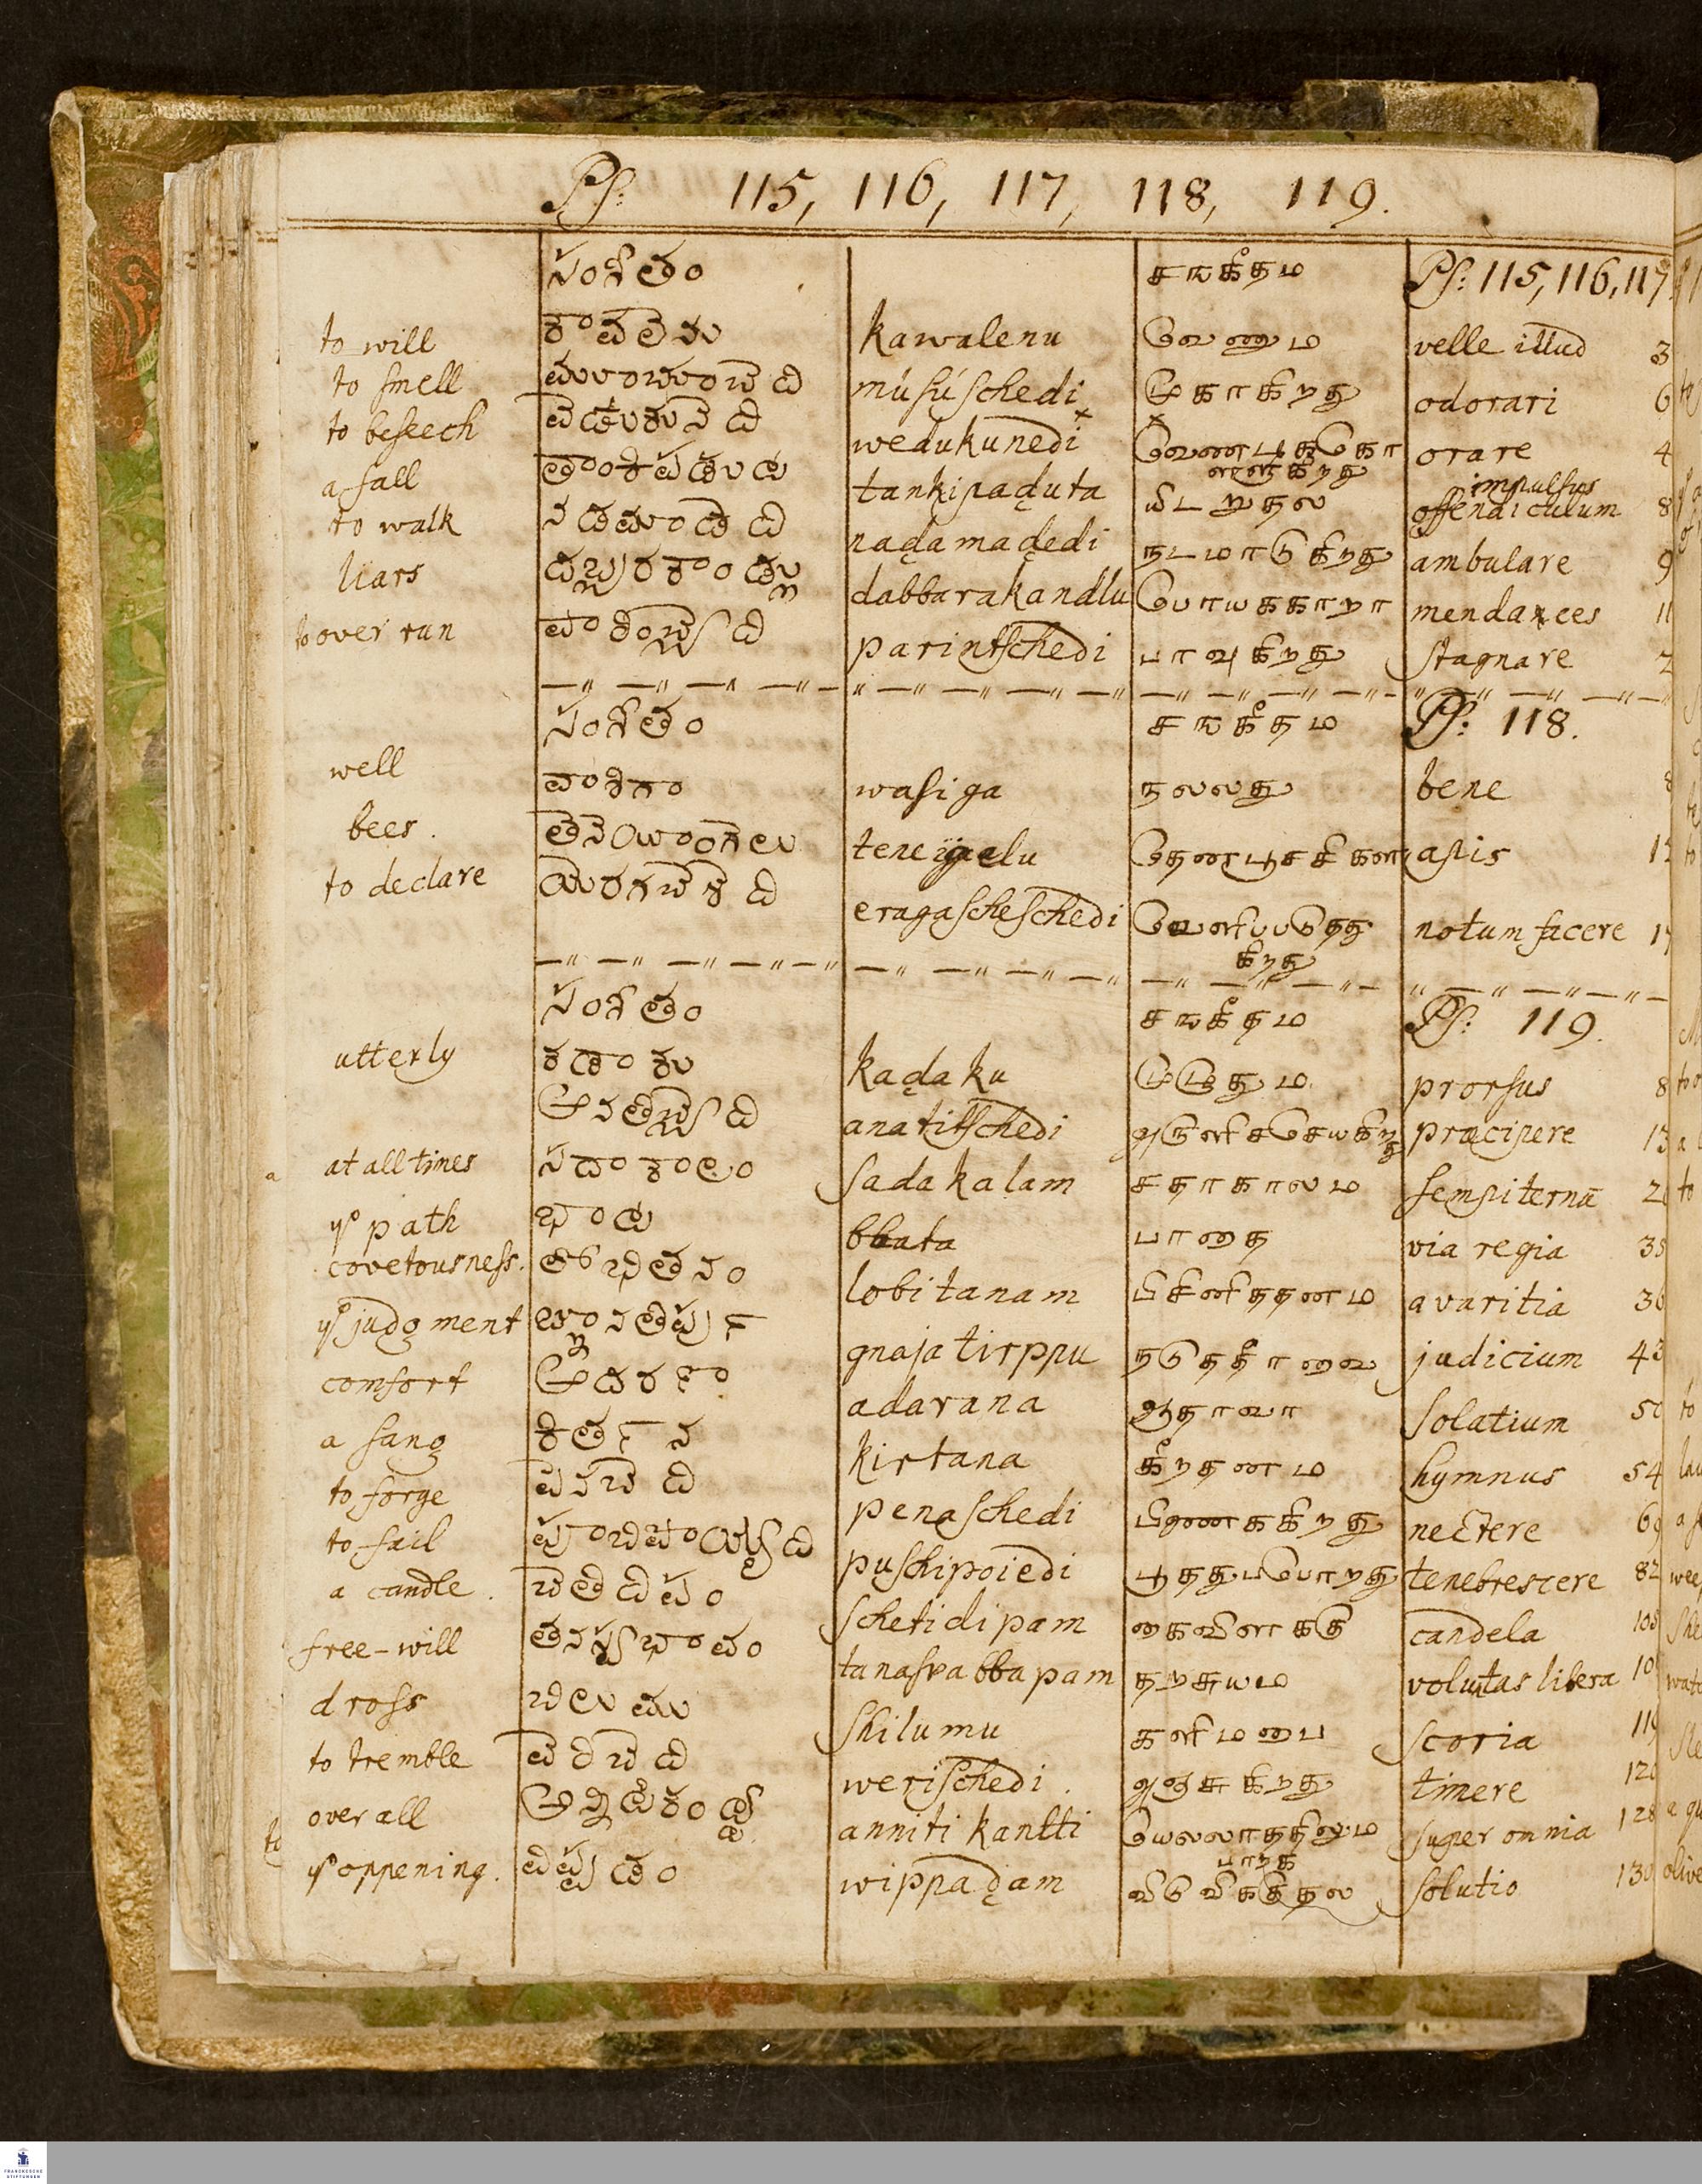 Ps: 115, 116, 117, 118, 119.
సంగీతం சஙகீதம Ps: 115, 116, 117
to will కావలెను kawalenu வேணும velle illud 3
to smell músúschedi முகாகிறது odorari 6
to beseech వెడుకునెది wedukunedi வேணடிகொ orare 4
ளளுகிறது impulsus
a fall తాంకిపడుట tankipaḍuta யிடறுதல offendiculum 8
to walk నడమాడెది naḍamaḍedi நடமாடுகிறது ambulare 9
liars దబ్బరకాండ్లు dabbarakandlu பொயககாறா mendaces 11
to over run పారించ్చెది parintschedi பாவுகிறது stagnare 2
సంగీతం சஙகீதம Ps: 118.
well వాశిగా wasiga நலலது bene 8
bees. teneigelu தேணபூசசிகள apis 12
to declare యెరగచెశెది eragascheschedi வெளிபபடுதது notum facere 17
கிறது
సంగీతం சஙகீதம Ps: 119.
utterly కడాకు kaḍaku முழுதும prorsus 8
అనతిచ్చెది anatitschedi præcipere 13
at all times సదాకాలం sadakalam சதாகாலம sempiternũ 20
yᵉ path బాట bbata பாதை via regia 35
covetousness. లోబితనం lobitanam பிசினிததனம avaritia 36
yᵉ judgment gnaja tirppu நடுததீாவை judicium 43
comfort ఆదరణా adarana ஆதாவா solatium 50
a sang కితర్న kirtana கீறதனம hymnus 54
to forge పెనచెది penaschedi பிணைககிறது nectere 69
to fail puschipoiedi பூததுபபோறது tenebrescere 82
a candle. చెతిదిపం schetidipam கைவிளககு candela 105
free-will tanasvabbapam தறசுயம voluntas libera 10
dross చిలుము shilumu களிமபை scoria 119
to tremble వెరిచెది werischedi. அஞசுகிறது timere 120
over all అన్నిటికంట్టె anniti kantti யெலலாததிலும super omnia 128
பாறக
yᵉ oppening. విప్పడం wippaḍam விடுவிககுதல solutio 130